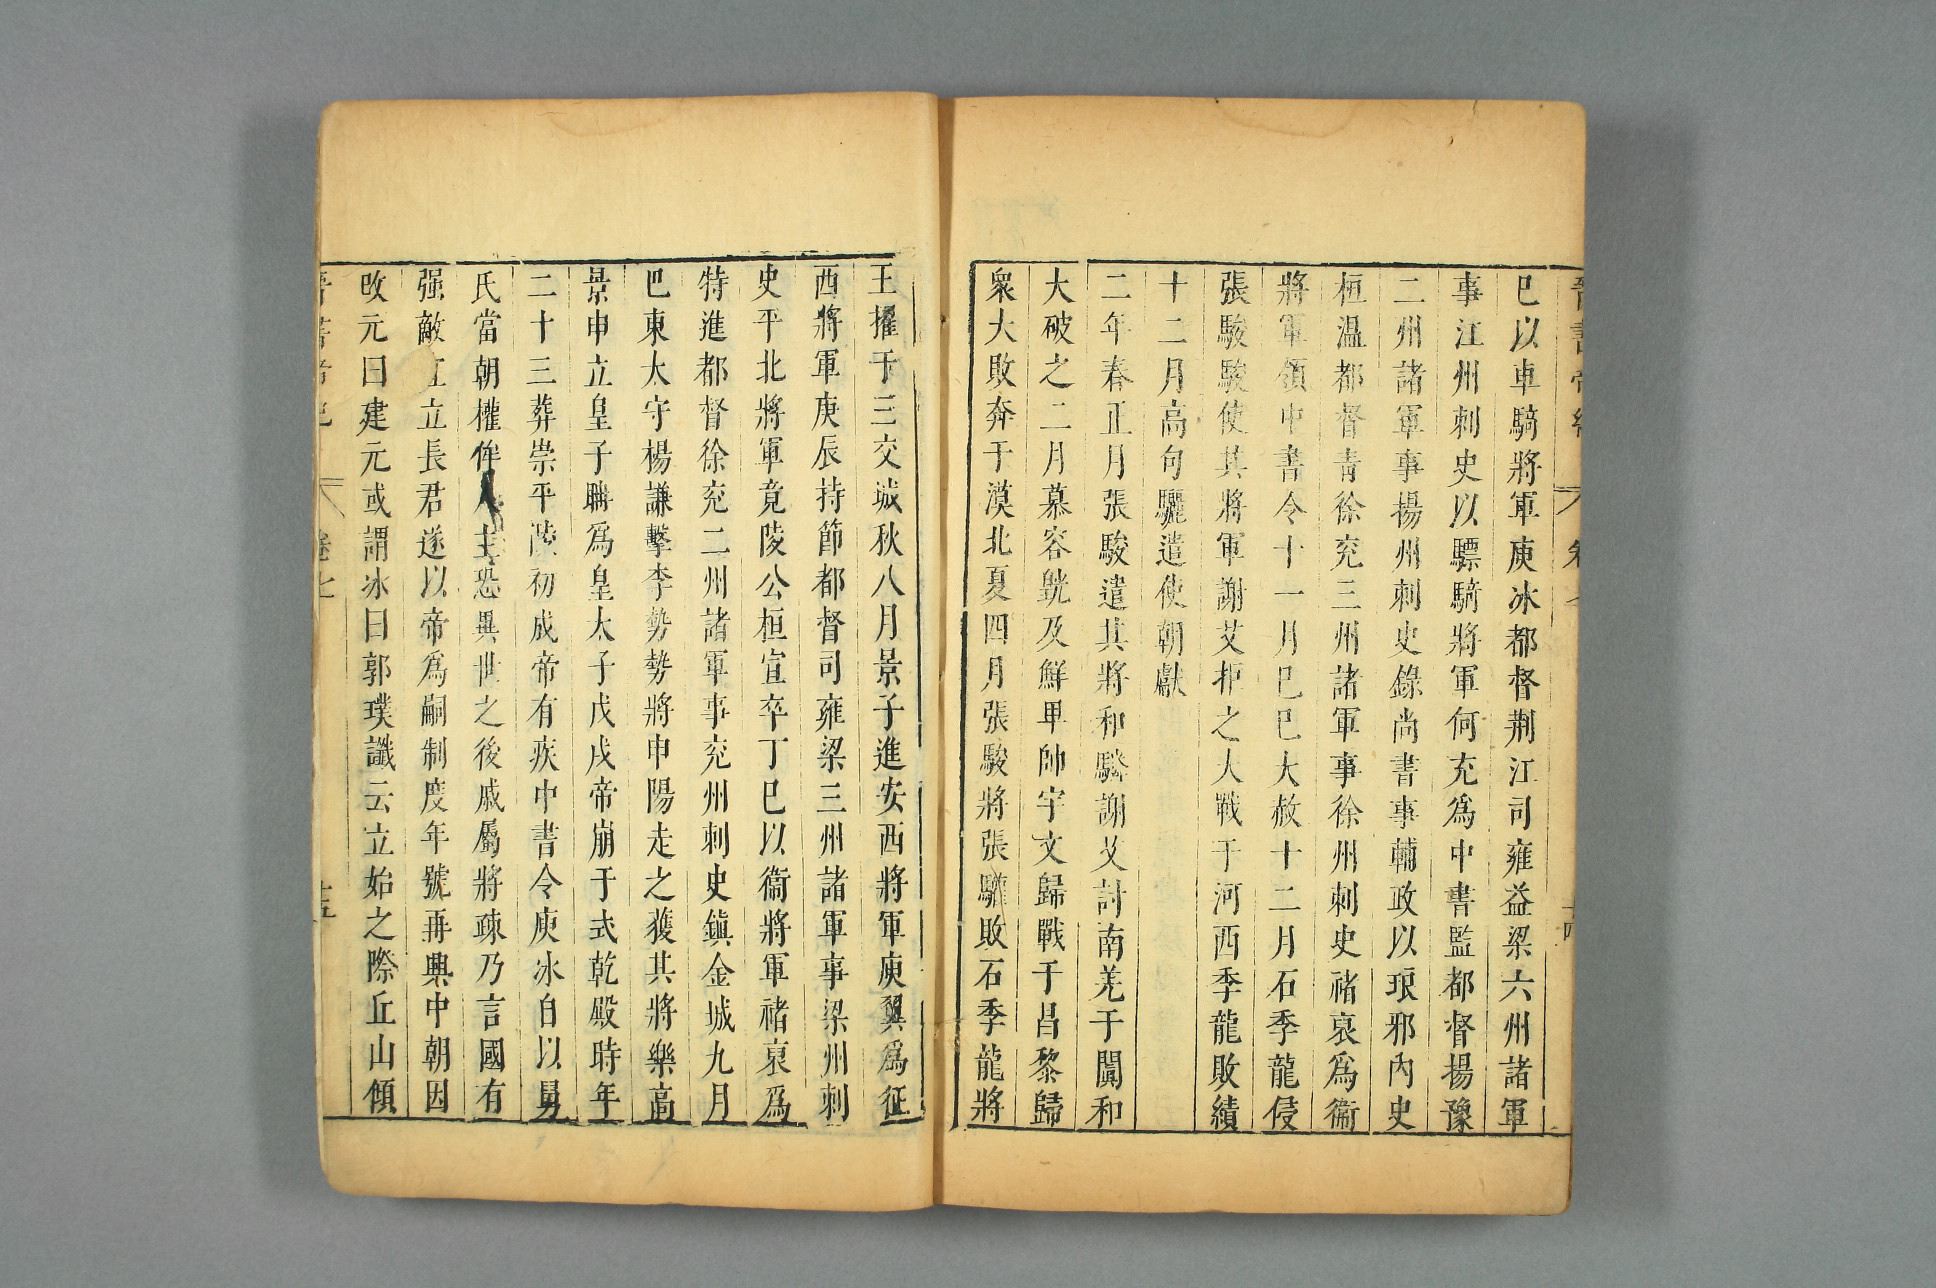 晉書帝紀 卷七 十四
巳以車騎將軍庾冰都督荆江司雍益梁六州諸軍
事江州刺史以驃騎將軍何充爲中書監都督揚豫
二州諸軍事揚州刺史錄尚書事輔政以琅邪內史
桓温都督青徐兖三州諸軍事徐州刺史禇裒爲衞
將軍領中書令十一月巳巳大赦十二月石季龍侵
張駿駿使其將軍謝艾拒之大戰于河西季龍敗績
十二月高句驪遣使朝獻
二年春正月張駿遣其將和驎謝艾討南羌于闐和
大破之二月慕容皝及鮮卑帥宇文歸戰于昌黎歸
衆大敗奔于漠北夏四月張駿將張瓘敗石季龍將
王擢于三交城秋八月景子進安西將軍庾翼爲征
西將軍庚辰持節都督司雍梁三州諸軍事梁州刺
史平北將軍竟陵公桓宣卒丁巳以衞將軍禇裒爲
特進都督徐兖二州諸軍事兖州刺史鎮金城九月
巴東太守楊謙擊李勢勢將申陽走之獲其將樂高
景申立皇子聃爲皇太子戊戌帝崩于式乾殿時年
二十三葬崇平陵初成帝有疾中書令庾冰自以舅
氏當朝權侔人主恐異世之後戚屬將疎乃言國有
强敵宜立長君遂以帝爲嗣制度年號再興中朝因
改元曰建元或謂冰曰郭璞讖云立始之際丘山傾
晉書帝紀 卷七 十五